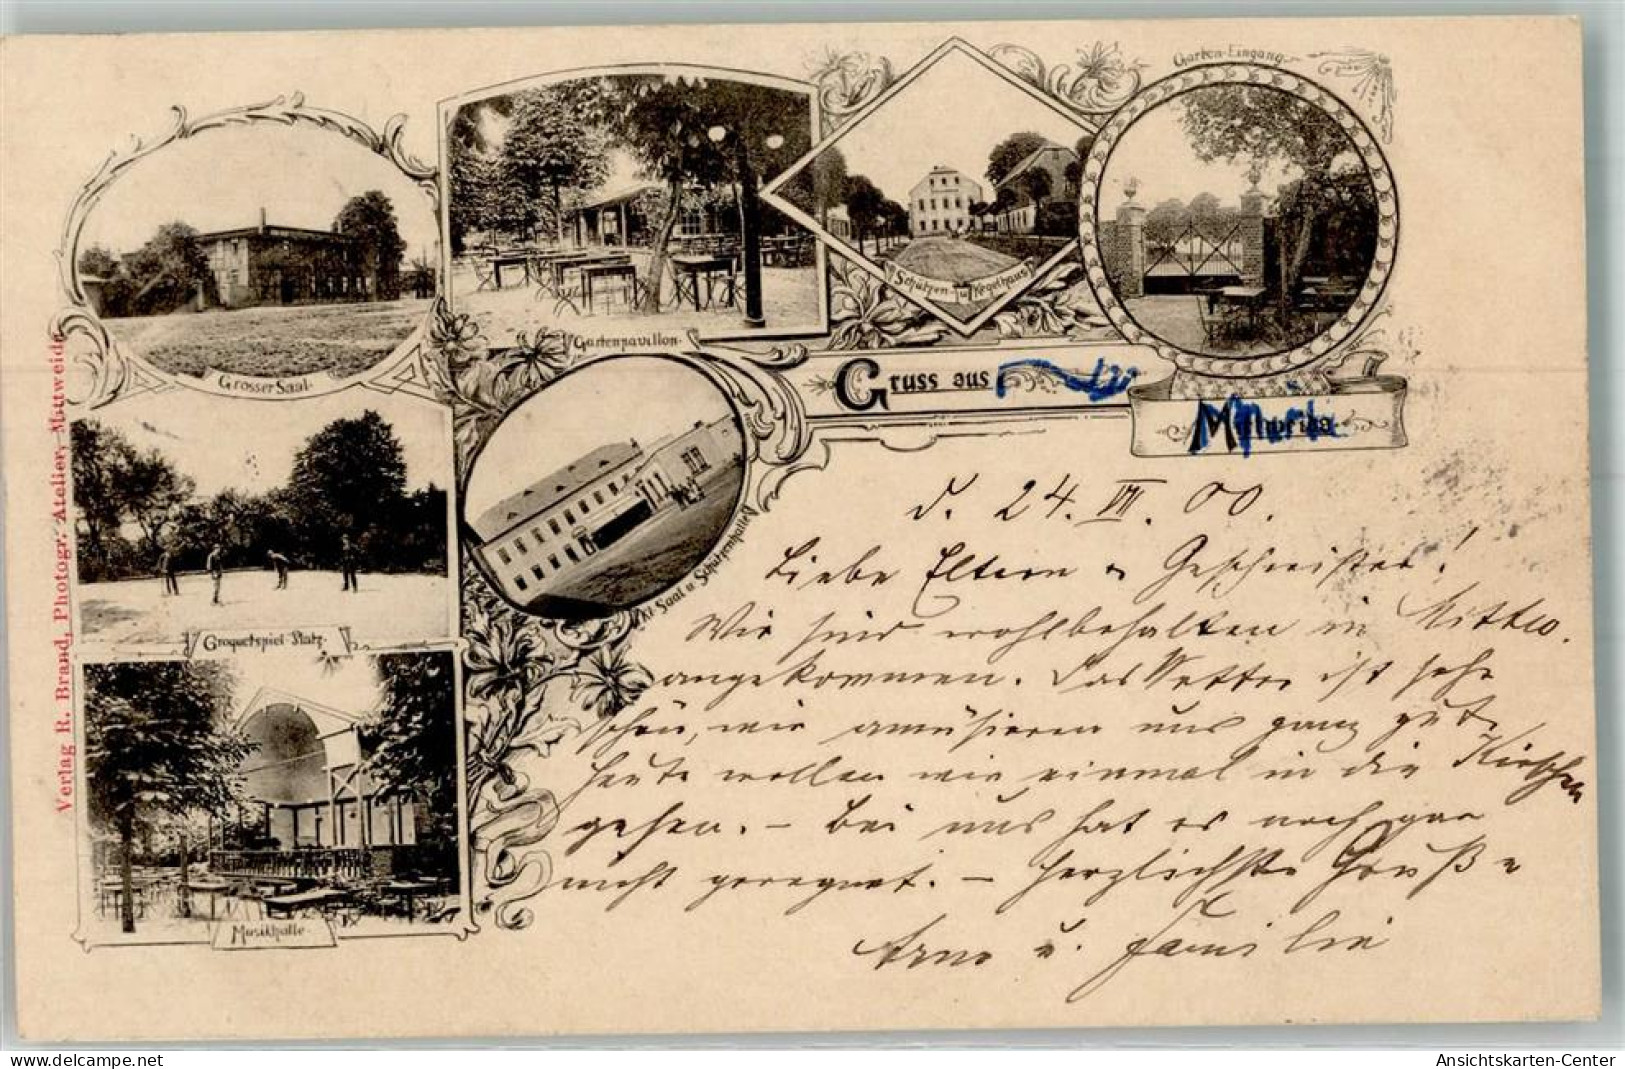 Garten-Eingang
Grosser Saal
Gartenpavillon
Schützen- u. Kegelhaus
Gruss aus
Croquetspiel-Platz
Kl. Saal u. Schützenhalle
Musikhalle
Verlag R. Brand, Photogr. Atelier, Mittweida
d. 24. VII. 00.
Liebe Eltern u Geschwister!
Wir sind wohlbehalten in Mittw.
angekommen. Das Wetter ist sehr
schön, wir amüsieren uns ganz gut.
Heute wollen wir einmal in die Kirschen
gehen. – Bei uns hat es noch gar
nicht geregnet. – Herzlichste Grüße
Arno u. Familie
Ansichtskarten-Center